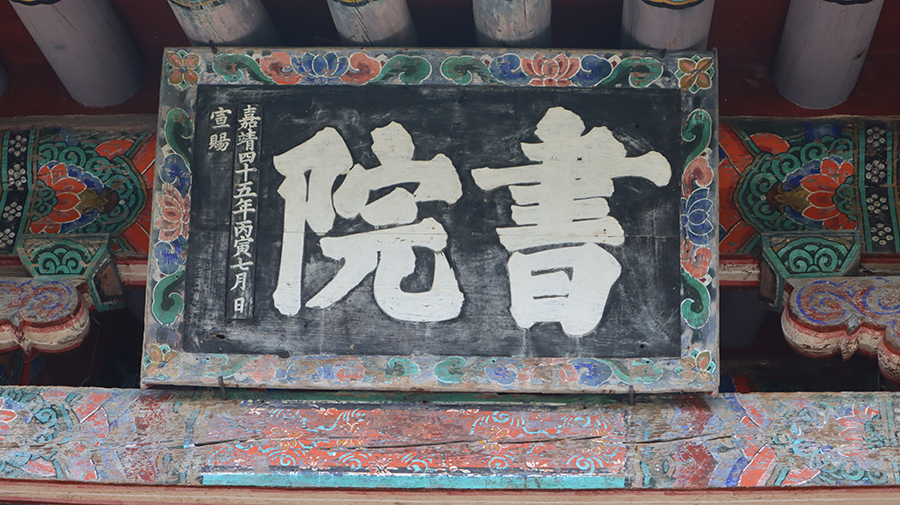 書院
嘉靖四十五年丙寅七月日
宣賜